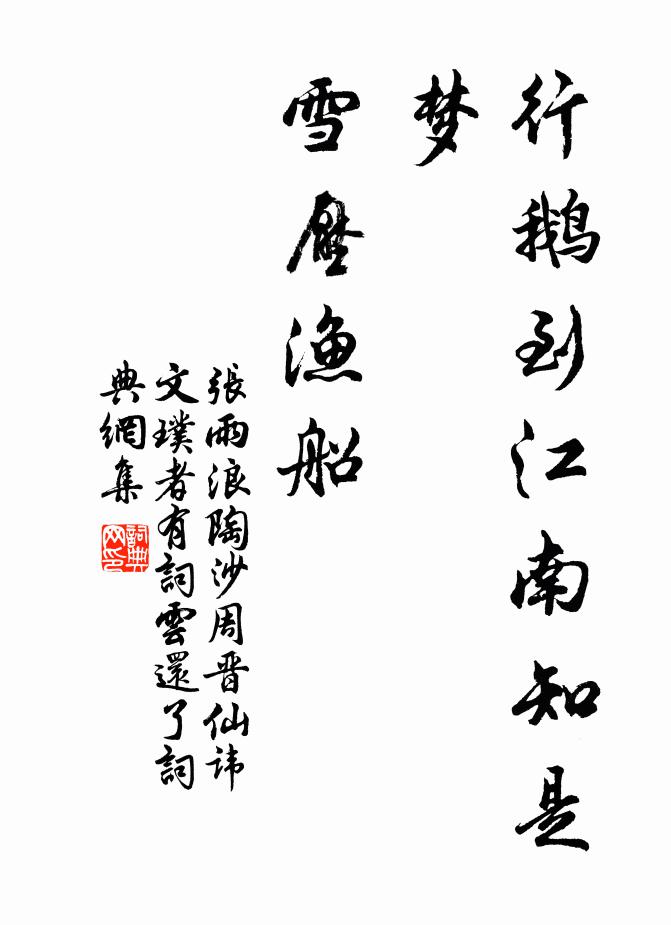 行鹅到江南知是
梦
雪壓渔船
張雨浪陶沙周晋仙讳
文璞者有詞雲還了詞
典網集
詞典
网印